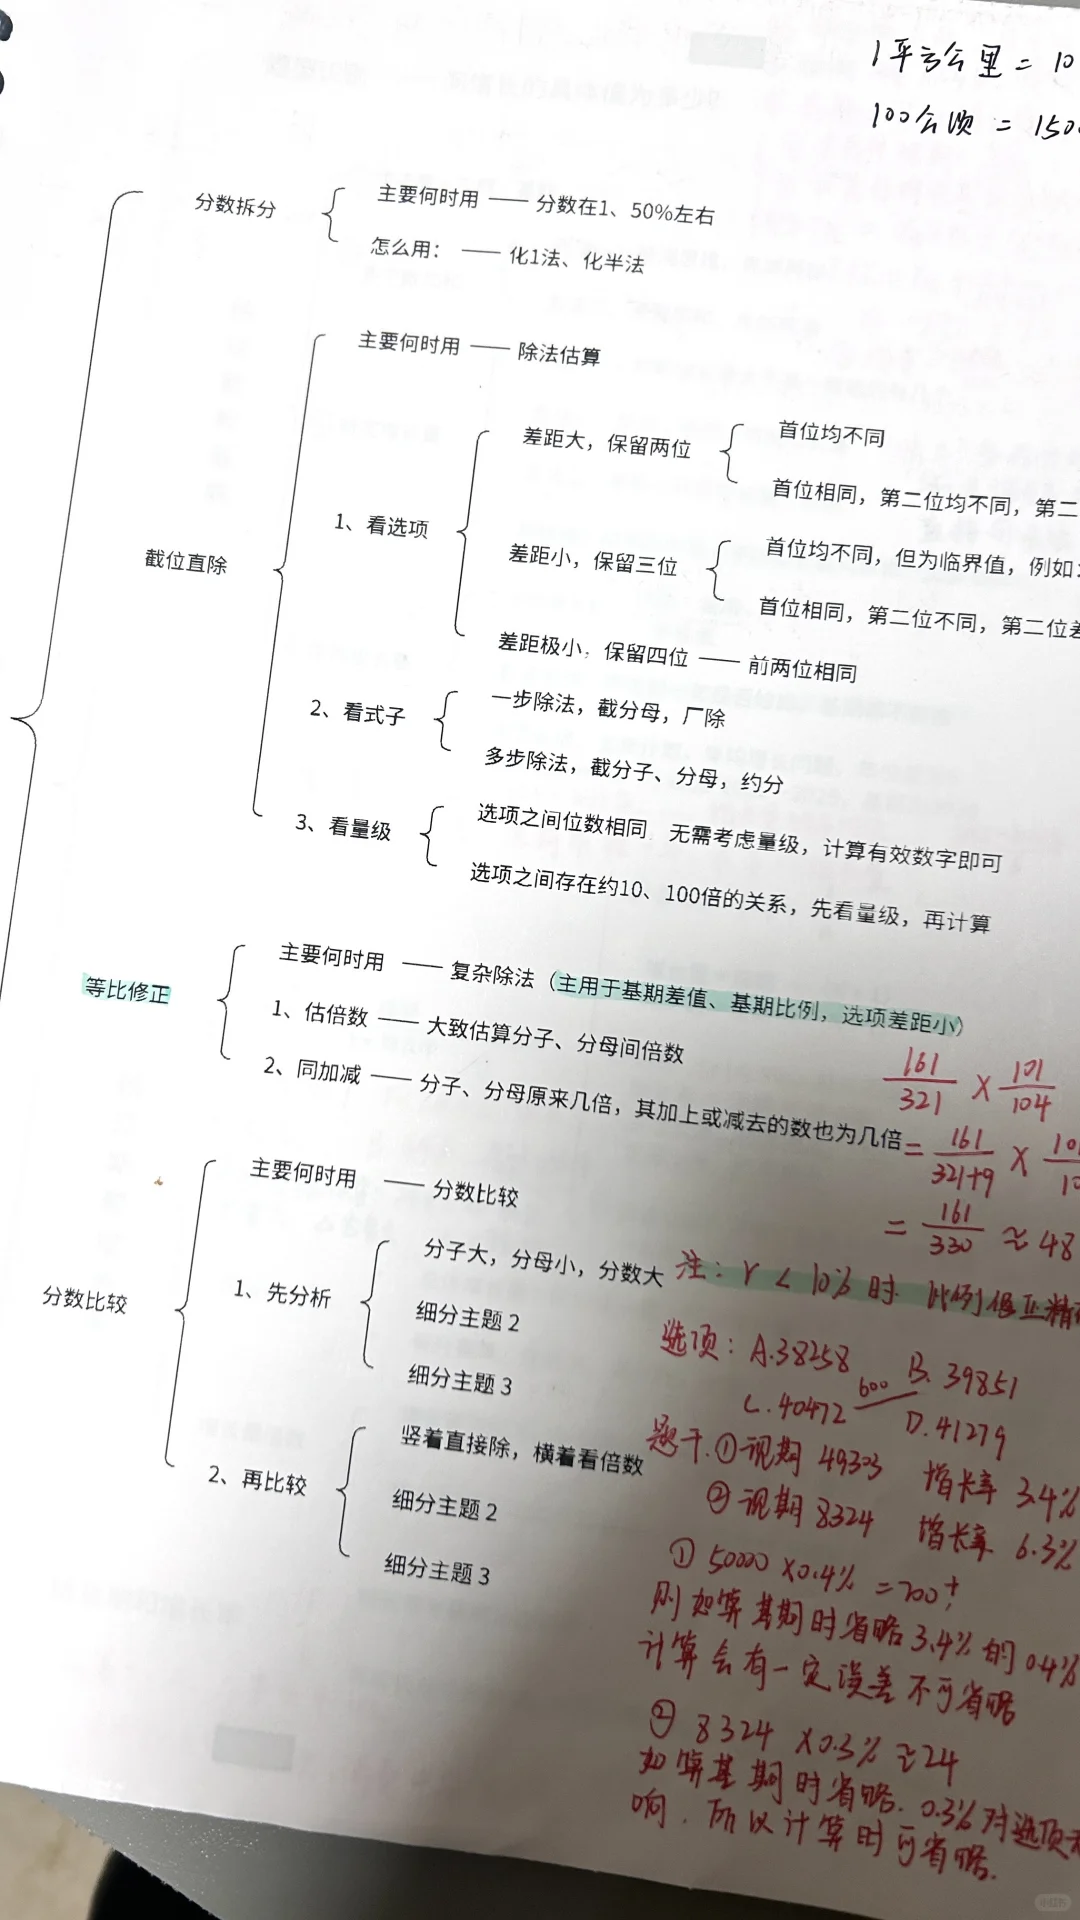 1平方公里 = 10
100公顷 = 150
分数拆分
主要何时用 —— 分数在1、50%左右
怎么用： —— 化1法、化半法
截位直除
主要何时用 —— 除法估算
1、看选项
差距大，保留两位
首位均不同
首位相同，第二位均不同，第二
差距小，保留三位
首位均不同，但为临界值，例如：
首位相同，第二位不同，第二位差
差距极小，保留四位 —— 前两位相同
2、看式子
一步除法，截分母，厂除
多步除法，截分子、分母，约分
3、看量级
选项之间位数相同 无需考虑量级，计算有效数字即可
选项之间存在约10、100倍的关系，先看量级，再计算
等比修正
主要何时用 —— 复杂除法（主用于基期差值、基期比例，选项差距小）
1、估倍数 —— 大致估算分子、分母间倍数
2、同加减 —— 分子、分母原来几倍，其加上或减去的数也为几倍
161/321 × 101/104
= 161/321+9 × 10
= 161/330 ≈ 48
注：r < 10% 时 比例修正精
分数比较
主要何时用 —— 分数比较
1、先分析
分子大，分母小，分数大
细分主题 2
细分主题 3
2、再比较
竖着直接除，横着看倍数
细分主题 2
细分主题 3
选项：A.38258 B. 39851
600
C.40472 D.41279
题干.①现期 49303 增长率 3.4%
②现期 8324 增长率 6.3%
① 50000 ×0.4% = 200+
则如算基期时省略3.4%的0.4%
计算会有一定误差不可省略
② 8324 ×0.3% ≈24
如算基期时省略.0.3%对选项
响.所以计算时可省略.